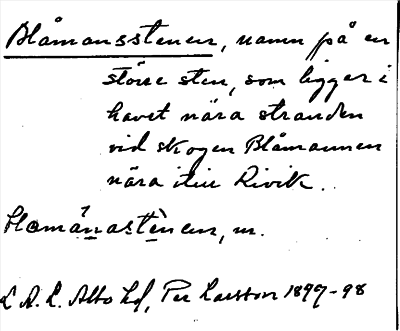 Blåmansstenen, namn på en
större sten, som ligger i
havet nära stranden
vid skogen Blåmannen
nära Rivik.
m.
L.A.L. Albo hd, Per Larsson 1897-98